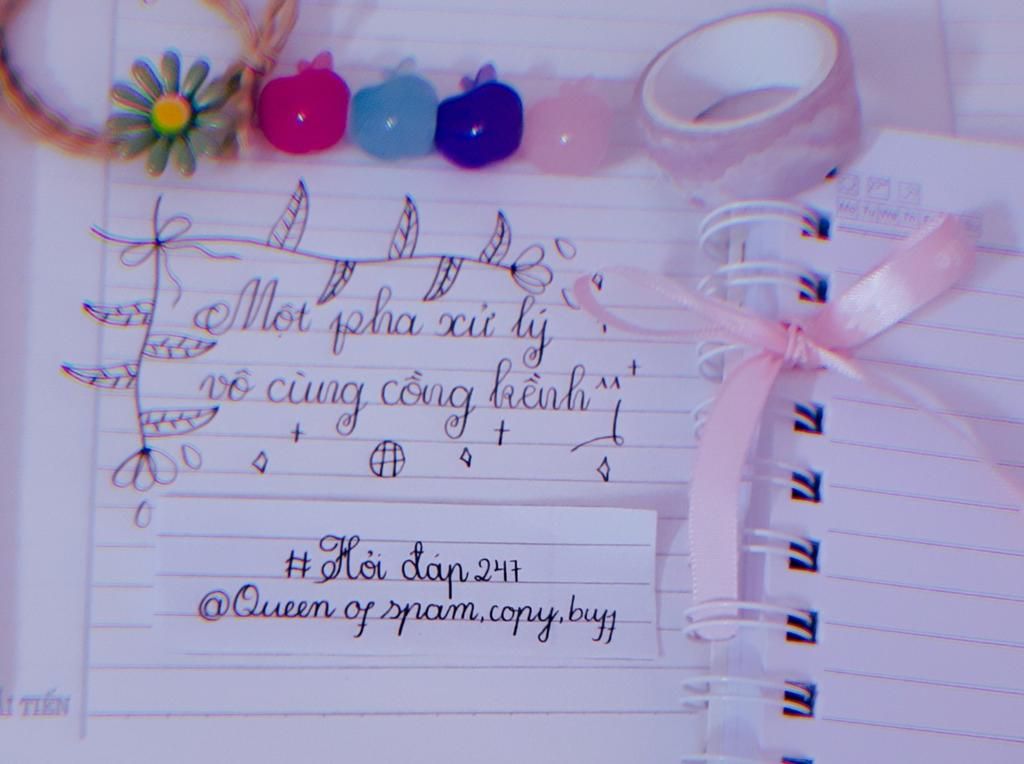 Mo Tu We Th
Một pha xử lý
vô cùng cồng kềnh
#Hỏi đáp 247
@Queen of spam,copy,buff
ẢI TIẾN